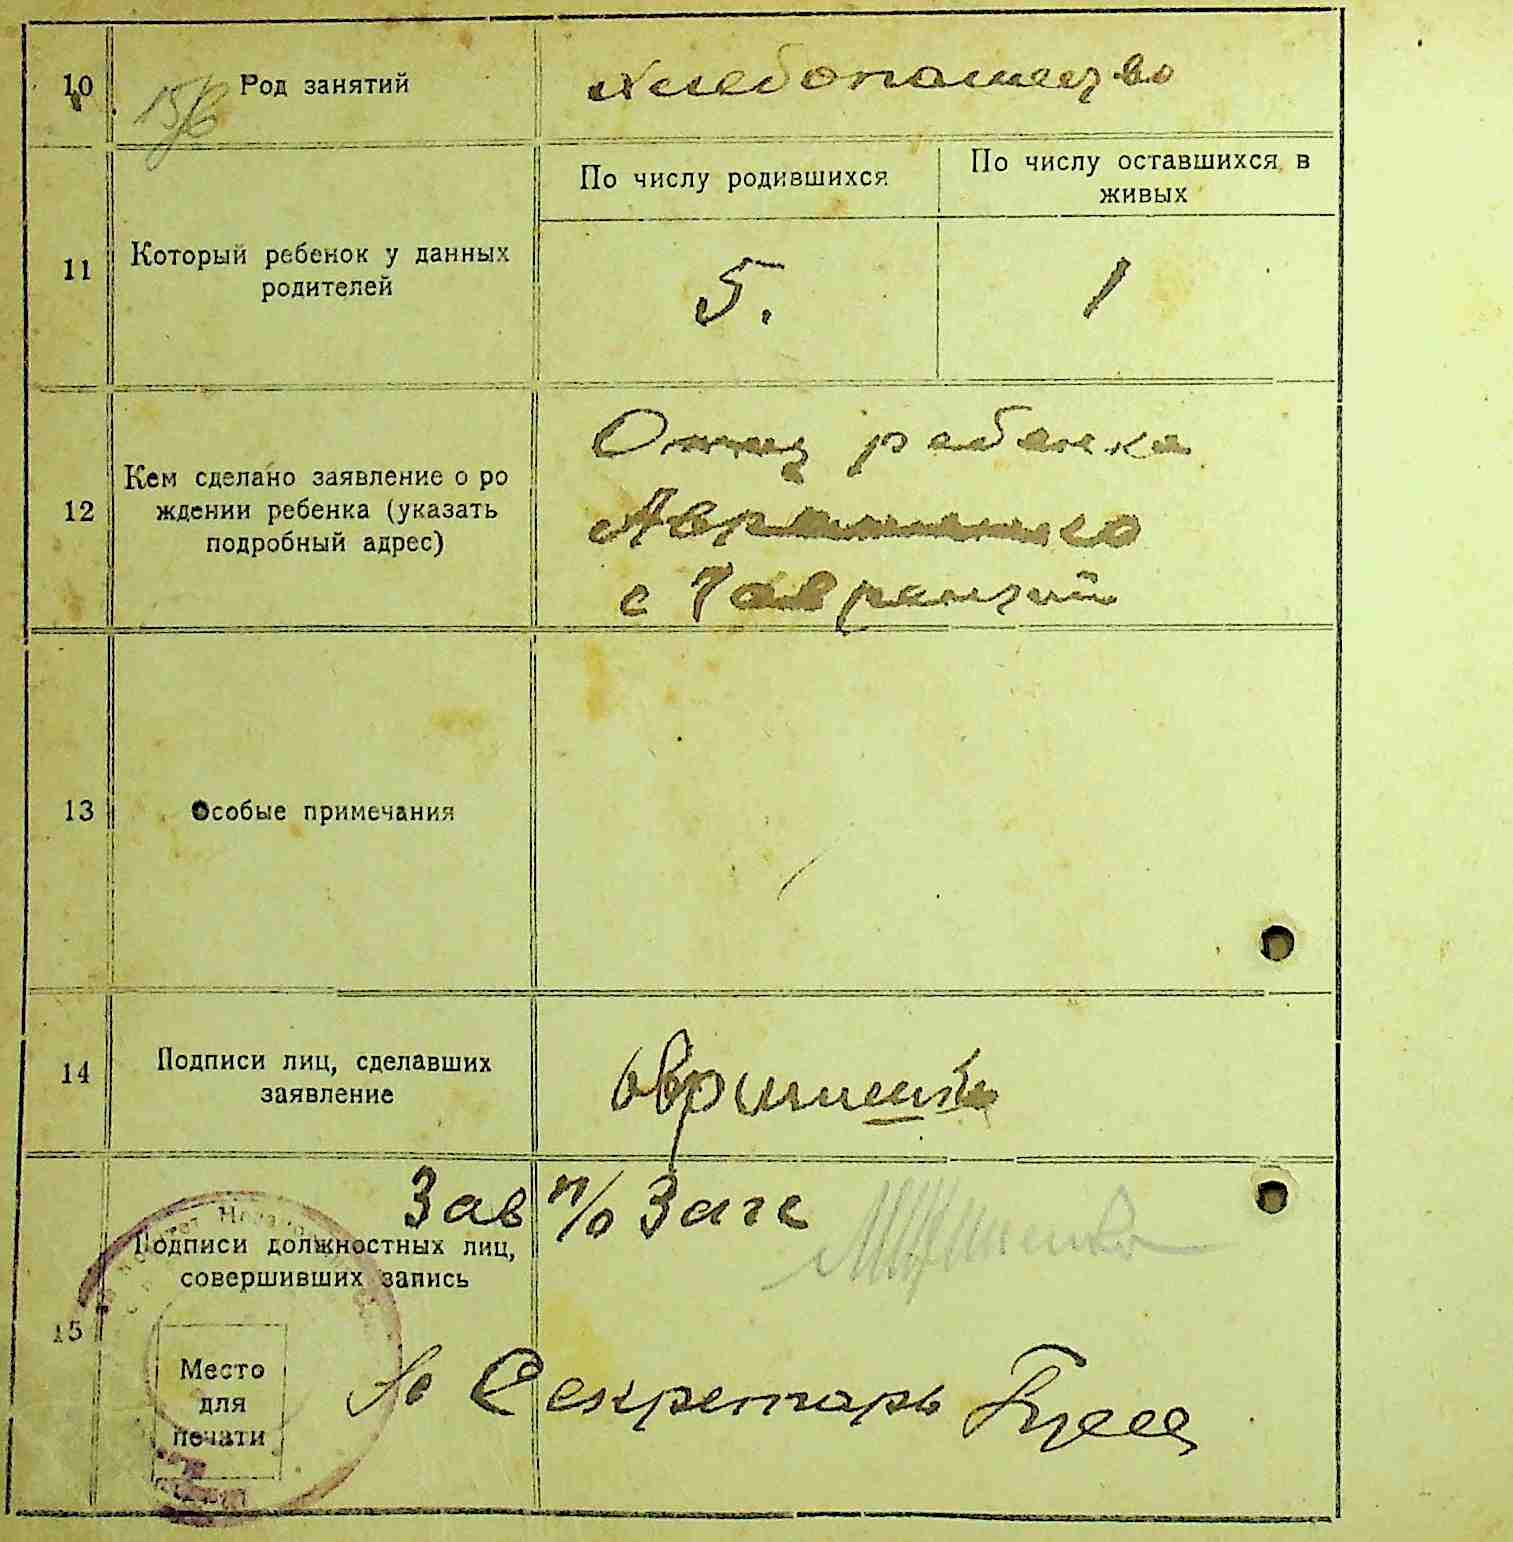 10
15/6
Род занятий
Хлебопашество
11
Который ребенок у данных
родителей
По числу родившихся
По числу оставшихся в
живых
5.
1
12
Кем сделано заявление о ро
ждении ребенка (указать
подробный адрес)
Отец ребенка
с Гаврилий
13
Особые примечания
14
Подписи лиц, сделавших
заявление
15
Зав п/о Загс
Подписи должностных лиц,
совершивших запись
Место
для
печати
Секретарь